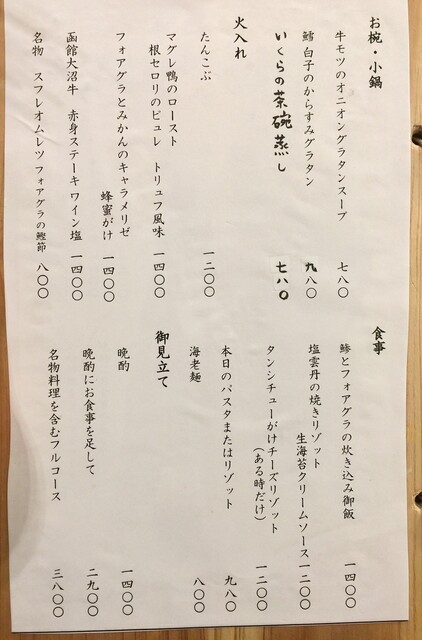 お椀・小鍋
牛モツのオニオングラタンスープ 七八〇
鱈白子のからすみグラタン 九八〇
いくらの茶碗蒸し 七八〇
火入れ
たんこぶ 一二〇〇
マグレ鴨のロースト
根セロリのピュレ トリュフ風味 一四〇〇
フォアグラとみかんのキャラメリゼ
蜂蜜がけ 一四〇〇
函館大沼牛 赤身ステーキワイン塩 一四〇〇
名物 スフレオムレツ フォアグラの鰹節 八〇〇
食事
鯵とフォアグラの炊き込み御飯 一四〇〇
塩雲丹の焼きリゾット
生海苔クリームソース 一二〇〇
タンシチューがけチーズリゾット
(ある時だけ) 一二〇〇
本日のパスタまたはリゾット 九八〇
海老麺 八〇〇
御見立て
晩酌 一四〇〇
晩酌にお食事を足して 二九〇〇
名物料理を含むフルコース 三八〇〇